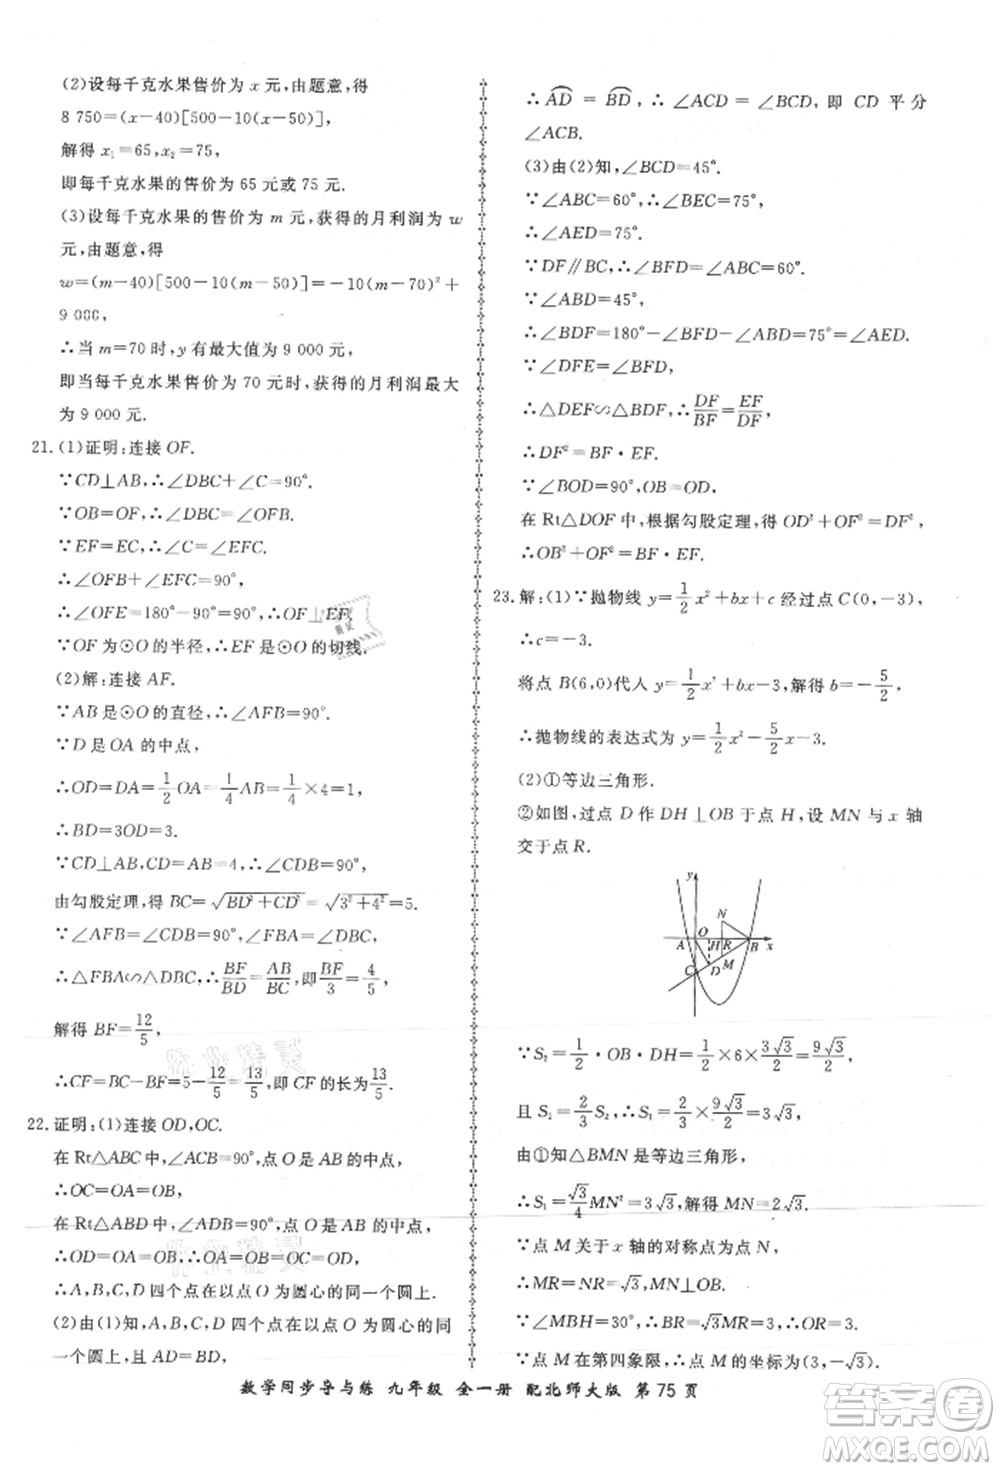 (2)设每千克水果售价为 x 元,由题意,得
8 750=(x-40)[500-10(x-50)],
解得 x₁=65,x₂=75,
即每千克水果的售价为 65 元或 75 元.
(3)设每千克水果的售价为 m 元,获得的月利润为 w
元,由题意,得
w=(m-40)[500-10(m-50)]=-10(m-70)²+
9 000,
∴当 m=70 时,y 有最大值为 9 000 元,
即当每千克水果售价为 70 元时,获得的月利润最大
为 9 000 元.
21.(1)证明:连接 OF.
∵CD⊥AB,∴∠DBC+∠C=90°.
∵OB=OF,∴∠DBC=∠OFB.
∵EF=EC,∴∠C=∠EFC.
∴∠OFB+∠EFC=90°.
∴∠OFE=180°-90°=90°,∴OF⊥EF.
∵OF 为⊙O 的半径,∴EF 是⊙O 的切线.
(2)解:连接 AF.
∵AB 是⊙O 的直径,∴∠AFB=90°.
∵D 是 OA 的中点,
∴OD=DA=1/2 OA=1/4 AB=1/4×4=1,
∴BD=3OD=3.
∵CD⊥AB,CD=AB=4,∴∠CDB=90°,
由勾股定理,得 BC=√(BD²+CD²)=√(3²+4²)=5.
∵∠AFB=∠CDB=90°,∠FBA=∠DBC,
∴△FBA∽△DBC,∴BF/BD=AB/BC,即BF/3=4/5,
解得 BF=12/5,
∴CF=BC-BF=5-12/5=13/5,即 CF 的长为13/5.
22.证明:(1)连接 OD,OC.
在 Rt△ABC 中,∠ACB=90°,点 O 是 AB 的中点,
∴OC=OA=OB.
在 Rt△ABD 中,∠ADB=90°,点 O 是 AB 的中点,
∴OD=OA=OB,∴OA=OB=OC=OD,
∴A,B,C,D 四个点在以点 O 为圆心的同一个圆上.
(2)由(1)知,A,B,C,D 四个点在以点 O 为圆心的同
一个圆上,且 AD=BD,
∴AD⌒=BD⌒,∴∠ACD=∠BCD,即 CD 平分
∠ACB.
(3)由(2)知,∠BCD=45°.
∵∠ABC=60°,∴∠BEC=75°,
∴∠AED=75°.
∵DF∥BC,∴∠BFD=∠ABC=60°.
∵∠ABD=45°,
∴∠BDF=180°-∠BFD-∠ABD=75°=∠AED.
∵∠DFE=∠BFD,
∴△DEF∽△BDF,∴DF/BF=EF/DF,
∴DF²=BF·EF.
∵∠BOD=90°,OB=OD,
在 Rt△DOF 中,根据勾股定理,得 OD²+OF²=DF²,
∴OB²+OF²=BF·EF.
23.解:(1)∵抛物线 y=1/2x²+bx+c 经过点 C(0,-3),
∴c=-3.
将点 B(6,0)代入 y=1/2x²+bx-3,解得 b=-5/2,
∴抛物线的表达式为 y=1/2x²-5/2x-3.
(2)①等边三角形.
②如图,过点 D 作 DH⊥OB 于点 H,设 MN 与 x 轴
交于点 R.
y
N
A O H R B x
C D M
∵S₂=1/2·OB·DH=1/2×6×3√3/2=9√3/2,
且 S₁=2/3S₂,∴S₁=2/3×9√3/2=3√3.
由①知△BMN 是等边三角形,
∴S₁=√3/4MN²=3√3,解得 MN=2√3.
∵点 M 关于 x 轴的对称点为点 N,
∴MR=NR=√3,MN⊥OB.
∵∠MBH=30°,∴BR=√3MR=3,∴OR=3.
∵点 M 在第四象限,∴点 M 的坐标为(3,-√3).
数学同步导与练 九年级 全一册 配北师大版 第75页
作业精灵
作业精灵
答案圈
MXQE.COM